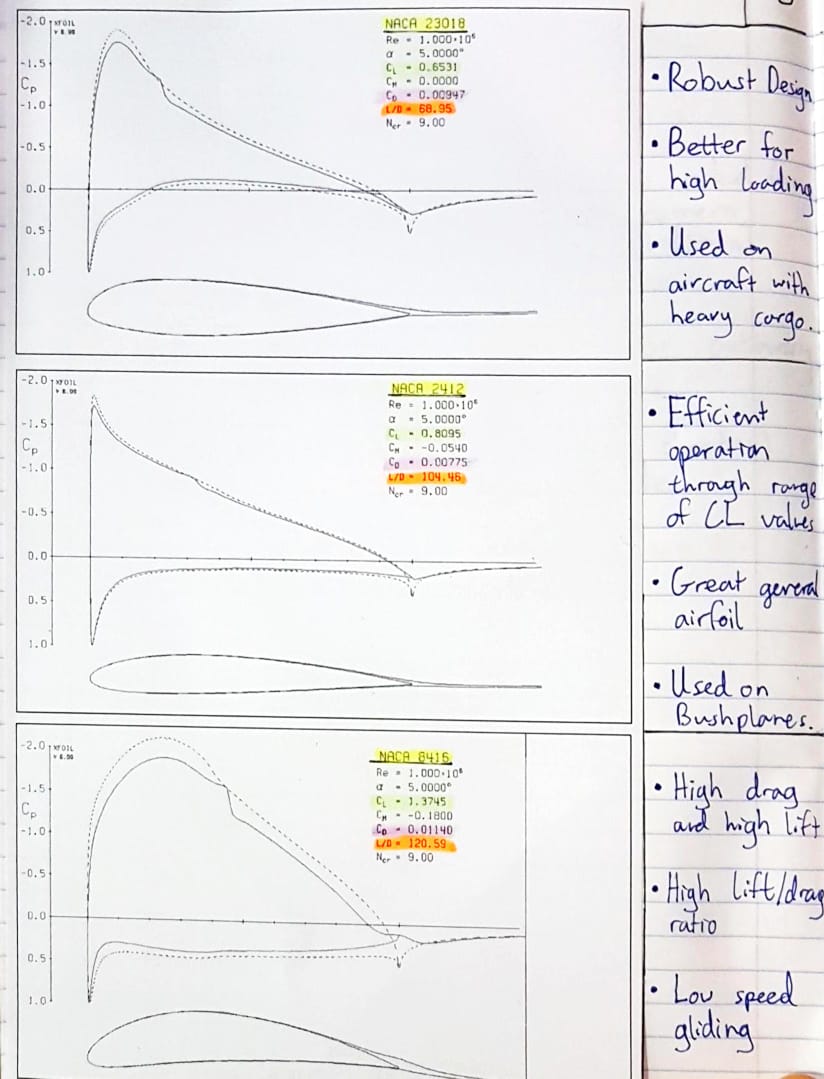 -2.0
XFOIL
V 6.99
-1.5
Cp
-1.0
-0.5
0.0
0.5
1.0
NACA 23018
Re = 1.000·10⁶
α = 5.0000°
CL = 0.6531
CM = 0.0000
CD = 0.00947
L/D = 68.95
Ncr = 9.00
• Robust Design
• Better for
high loading
• Used on
aircraft with
heavy cargo.
-2.0
XFOIL
V 6.99
-1.5
Cp
-1.0
-0.5
0.0
0.5
1.0
NACA 2412
Re = 1.000·10⁶
α = 5.0000°
CL = 0.8095
CM = -0.0540
CD = 0.00775
L/D = 104.46
Ncr = 9.00
• Efficient
operation
through range
of CL values
• Great general
airfoil
• Used on
Bushplanes.
-2.0
XFOIL
V 6.99
-1.5
Cp
-1.0
-0.5
0.0
0.5
1.0
NACA 8415
Re = 1.000·10⁶
α = 5.0000°
CL = 1.3745
CM = -0.1800
CD = 0.01140
L/D = 120.59
Ncr = 9.00
• High drag
and high lift
• High lift/drag
ratio
• Low speed
gliding